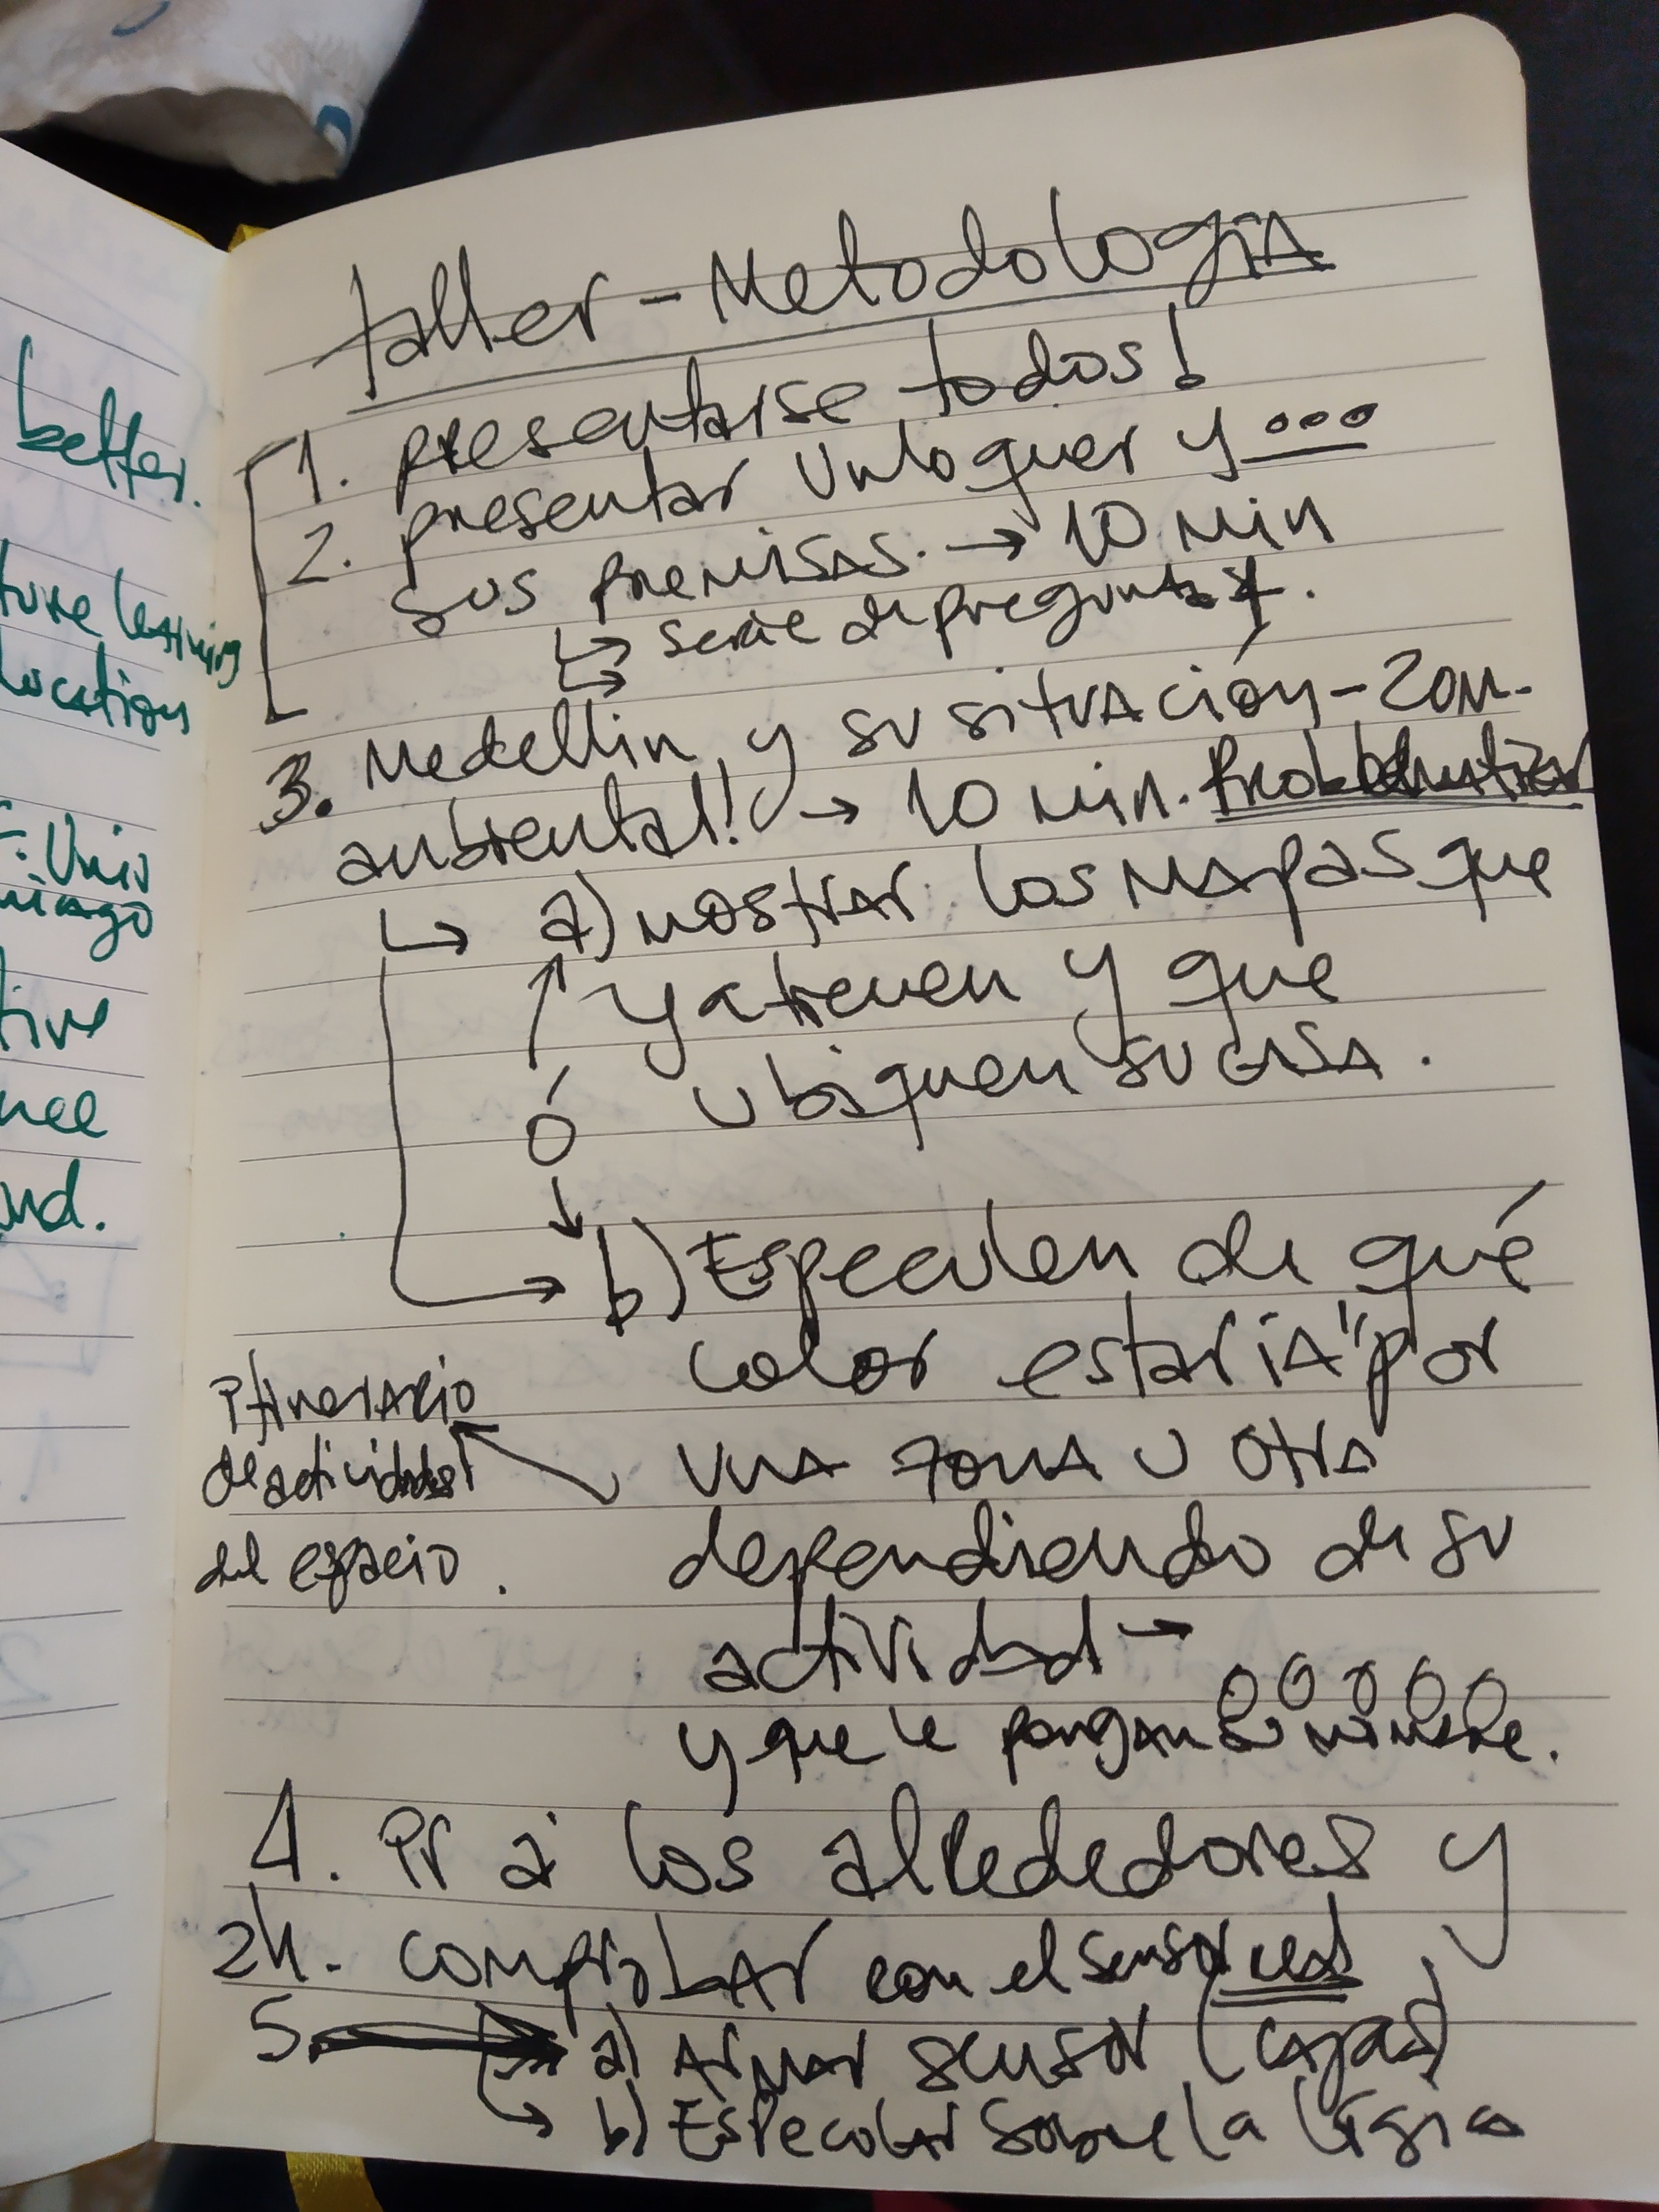 better.
ture learning
location
Univ
tive
nce
nd.
taller - Metodología
1. presentarse todos!
2. presentar Unloquer y ...
sus premisas. → 10 min
↳ serie de preguntas.
3. Medellín y su situación - zom.
ambiental! → 10 min. Problematizar
↳ a) mostrar los mapas que
ya tienen y que
ubiquen su casa.
ó
b) Especulen de qué
color estaría por
una zona u otra
dependiendo de su
actividad →
y que le pongan su nombre.
itinerario
de actividades
del espacio.
4. ir a los alrededores y
2h. comprobar con el sensor real
5. → a) Armar sensor (cajas)
↳ b) Especular sobre la